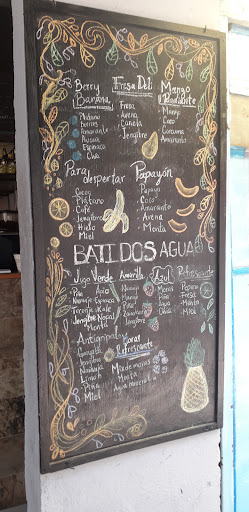 Berry
Banana
Plátano
Berries
Amaranto
Avena
Espinaca
Chia
Fresa Deli
Fresa
Avena
Canela
Jengibre
Mango
Mango
Coco
Cúrcuma
Amaranto
Para
despertar
Plátano
Café
Jengibre
Hielo
Miel
Papayón
Papaya
Coco
Amaranto
Avena
Menta
BATIDOS AGUA
Jugo Verde
Piña Apio
Naranja Espinaca
Toronja Kale
Jengibre Nopal
Menta
Amarillo
Naranja
Mango
Piña
Zanahoria
Jengibre
Azul
Moras
Piña
Chia
Refrescante
Pepino
Fresa
Menta
Miel
Antigripal
Guayaba
Jengibre
Naranja
Limón
Piña
Miel
Coral
Refrescante
Mix de moras
Menta
Agua mineral